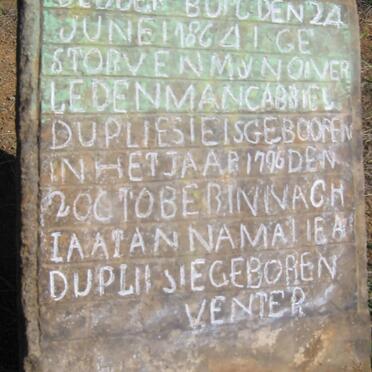 BUIGDEN 24
JUNE I 1864 I GE
STORVEN MYN OIVER
LEDEN MAN CABRIEL
DUPLIESIE IS GEBOOREN
IN HET JAAR 1796 DEN
2 OCTOBER IN NACH
IAATAN NAMALIEA
DUPLII SIE GEBOREN
VENTER